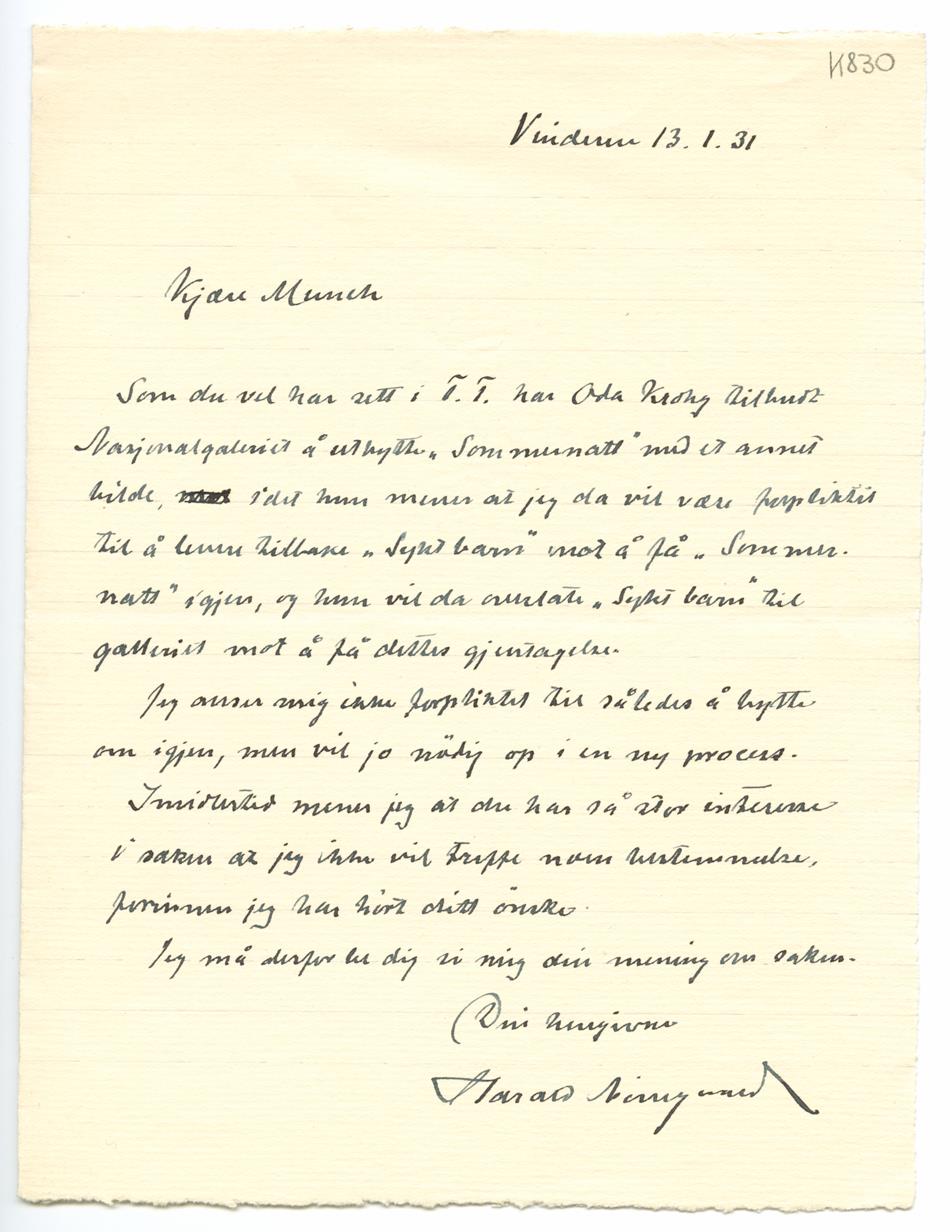 K830
Vinderen 13. 1. 31
Kjære Munch
Som du vel har sett i T.T. har Oda Krohg tilbudt
Nasjonalgaleriet å utbytte „Sommernatt" med et annet
bilde, idet hun mener at jeg da vil være forpliktet
til å levere tilbake „Sykt barn" mot å få „Sommer-
natt" igjen, og hun vil da overlate „Sykt barn" til
galleriet mot å få dettes gjentagelse.
Jeg anser mig ikke forpliktet til således å bytte
om igjen, men vil jo nödig op i en ny process.
Imidlertid mener jeg at du har så stor interesse
i saken at jeg ikke vil treffe noen bestemmelse,
forinnen jeg har hört ditt önske.
Jeg må derfor be dig si mig din mening om saken.
Din hengivne
Harald Nörregaard